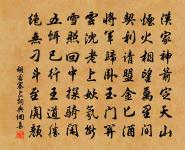 漢家神箭定天山
煙火相望萬里間
契利請盟金匕酒
將軍歸卧玉門關
雲沈老上妖氛斷
雪照回中探騎還
五餌已行王道勝
絕無刁斗至闐顏
胡宿塞上詞典網書